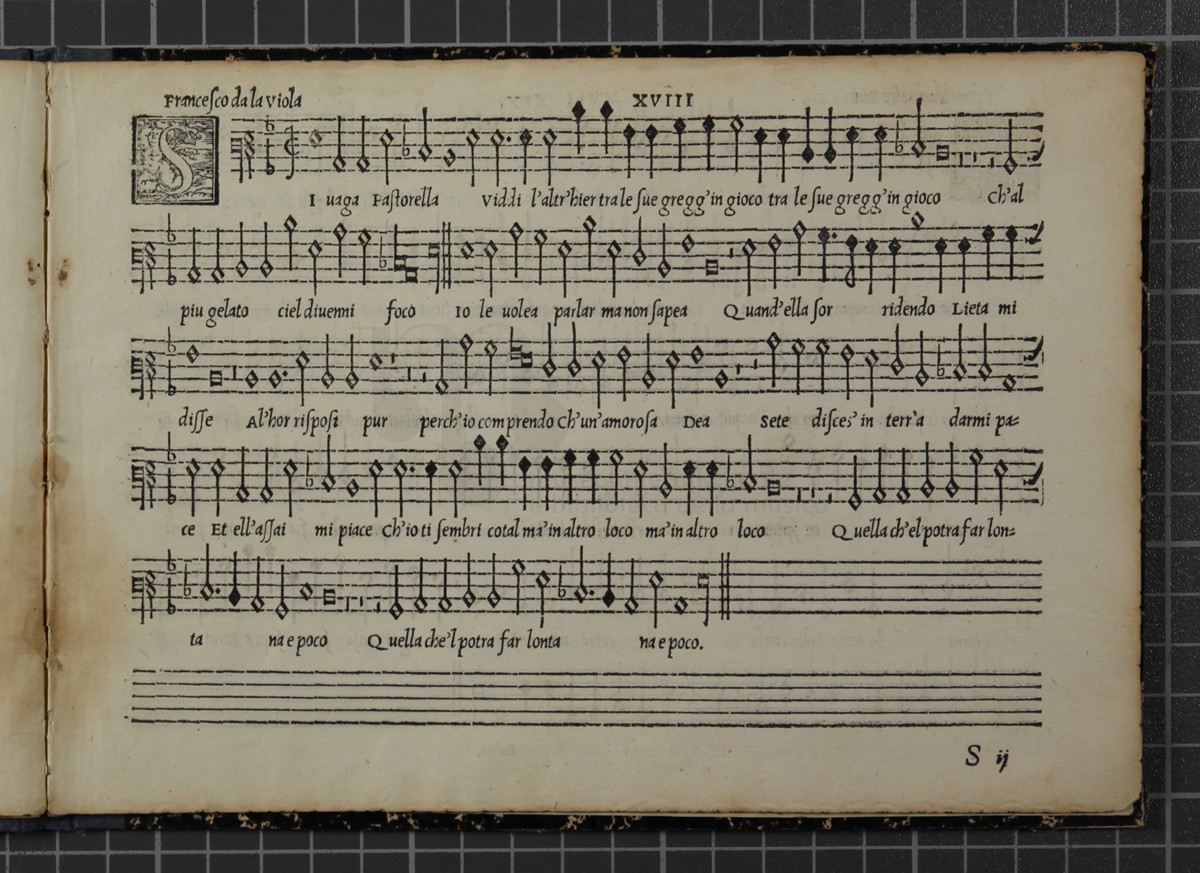 Franceſco da la Viola XVIII
S I uaga Paſtorella Viddi l'altr'hier tra le ſue gregg'in gioco tra le ſue gregg'in gioco Ch'al
piu gelato ciel diuenni foco Io le uolea parlar ma non ſapea Quand'ella ſor ridendo Lieta mi
diſſe Al'hor riſpoſi pur perch'io comprendo Ch'un'amoroſa Dea Sete diſces' in terr'a darmi pa=
ce Et ell'aſſai mi piace Ch'io ti ſembri cotal ma'in altro loco ma'in altro loco Quella ch'el potra far lon=
ta na e poco Quella che'l potra far lonta na e poco.
S ij